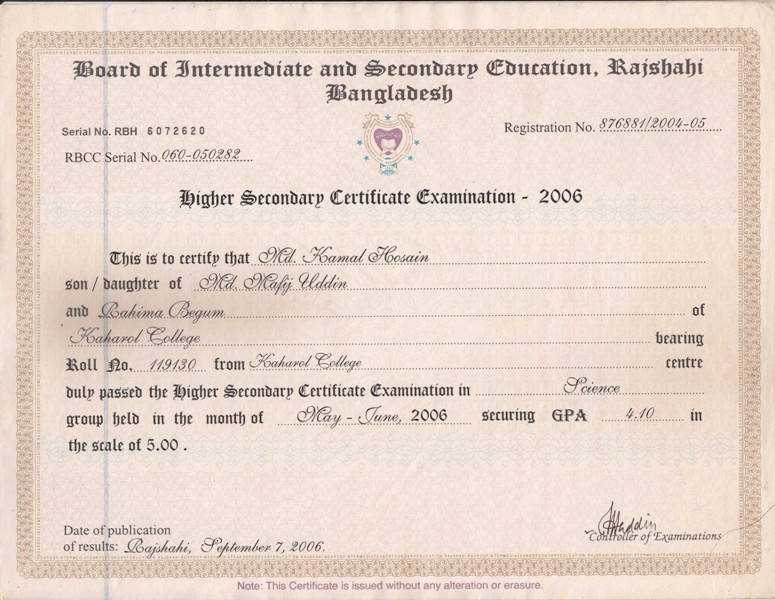 Board of Intermediate and Secondary Education, Rajshahi
Bangladesh
Serial No. RBH 6072620
Registration No. 876881/2004-05
RBCC Serial No. 060-050282
Higher Secondary Certificate Examination - 2006
This is to certify that Md. Kamal Hosain
son / daughter of Md. Mafij Uddin
and Rahima Begum of
Kaharol College bearing
Roll No. 119130 from Kaharol College centre
duly passed the Higher Secondary Certificate Examination in Science
group held in the month of May - June, 2006 securing GPA 4.10 in
the scale of 5.00 .
Date of publication
of results: Rajshahi, September 7, 2006.
Controller of Examinations
Note: This Certificate is issued without any alteration or erasure.